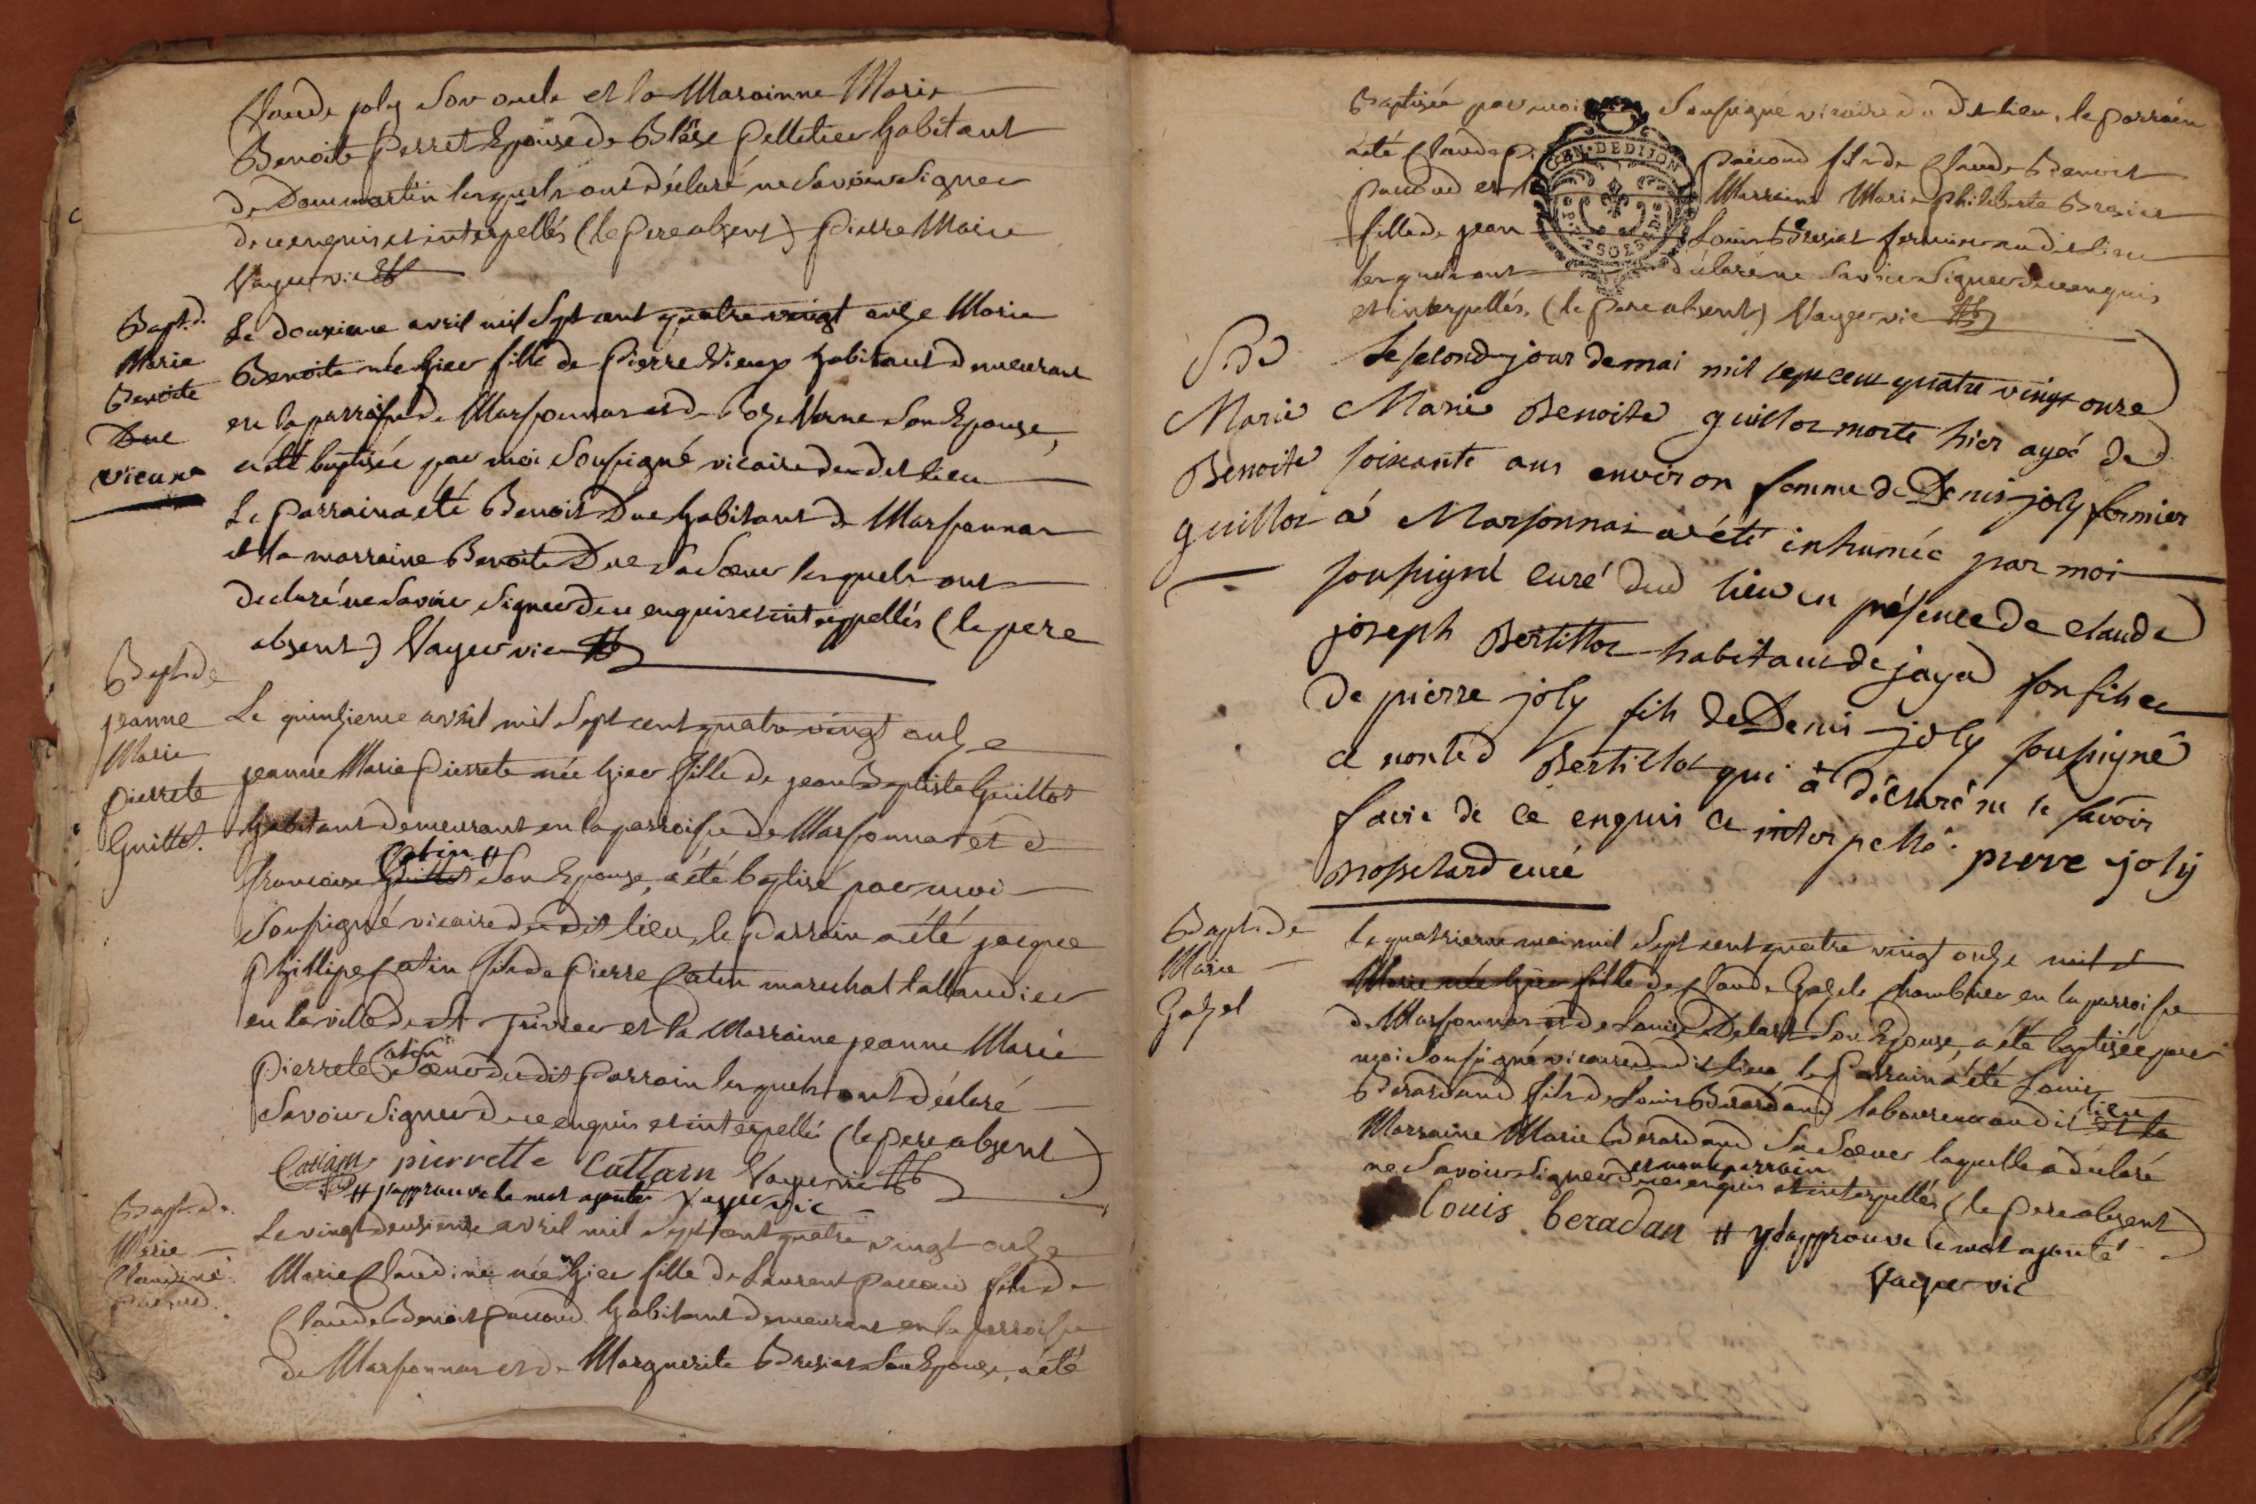 Claude joly Son oncle et la Marainne Marie
Benoite Perret Epouse de Blaise Pelletier habitant
de Dommartin lesquels ont déclaré ne Savoir Signer
de ce enquis et interpellés (le Pere absent) Pierre Marie
Vayer vic
Bapt. de
Marie
Benoite
Due
vieux
Le douzieme avril mil Sept cent quatre vingt onze Marie
Benoite née hier fille de Pierre Vieux habitant demeurant
en la parroisse de Marsonnas et de Verne Son Epouse,
a été baptisée par moi Soussigné vicaire du dit lieu
Le Parrain a été Benoit Due habitant de Marsonnas
et la marraine Benoite Due Sa Soeur lesquels ont
declaré ne Savoir Signer de ce enquis et interppellés (le pere
absent) Vayer vic
Bapt. de
jeanne
Marie
pierrete
Guillot.
Le quinzieme avril mil Sept cent quatre vingt onze
jeanne Marie Pierrete née hier fille de jean Baptiste Guillot
habitant demeurant en la parroisse de Marsonnas et de
francoise Guillot Catin # Son Epouse, a été baptisé par moi
Soussigné vicaire du dit lieu, le parrain a été jacque
Philipe Catin fils de Pierre Catin marechal tallandier
en la ville de St. trivier et la Marraine jeanne Marie
Pierrete Catin Soeur du dit Parrain lesquels ont déclaré
Savoir Signer de ce enquis et interpellés (le Pere absent)
Cattain pierrette Cattain Vayer vic
# j'approuve le mot ajouté Vayer vic
Bapt. de
Marie
Claudine
Pacoud.
Le vingt deuxieme avril mil Sept cent quatre vingt onze
Marie Claudine née hier fille de Laurent Pacoud fils de
Claude Benoit Pacoud habitant demeurant en la parroisse
de Marsonnas et de Marguerite Bresiat Son Epouse, a été
Baptisée par moi Soussigné vicaire du dit lieu, le parrain
a été Claude Pacoud fils de Claude Benoit
Pacoud et la Marraine Marie Philiberte Bresiat
fille de jean Louis Bresiat fermier au dit lieu
lesquels ont déclaré ne Savoir Signer de ce enquis
et interpellés, (le Pere absent) Vayer vic
GEN. DE DIJON
S. de
Marie
Benoite
guillot
Le second jour de mai mil sept cent quatre vingt onze
Marie Benoite guillot morte hier agée de
soixante ans environ femme de Denis joly fermier
à Marsonnas a été inhumée par moi
soussigné curé dud lieu en présence de claude
joseph Bertillot habitant de jayad son fils et
de pierre joly fils de Denis joly soussigné
et non led Bertillot qui a déclaré ne le savoir
faire de ce enquis et interpellé. pierre joly
curé
Bapt. de
Marie
Gazel
Le quatrieme mai mil Sept cent quatre vingt onze
Marie née hier fille de Claude Gazel en la parroisse
de Marsonnas et de Louise Son Epouse, a été baptisée par
moi Soussigné vicaire du dit lieu le Parrain a été Louis
Berardand fils de Louis Berardand laboureur au dit lieu et la
Marraine Marie Berardand Sa Soeur laquelle a déclaré
ne Savoir Signer et non le parrain de ce enquis et interpellés, (le Pere absent)
Louis beradan # j'approuve le mot ajouté
Vayer vic